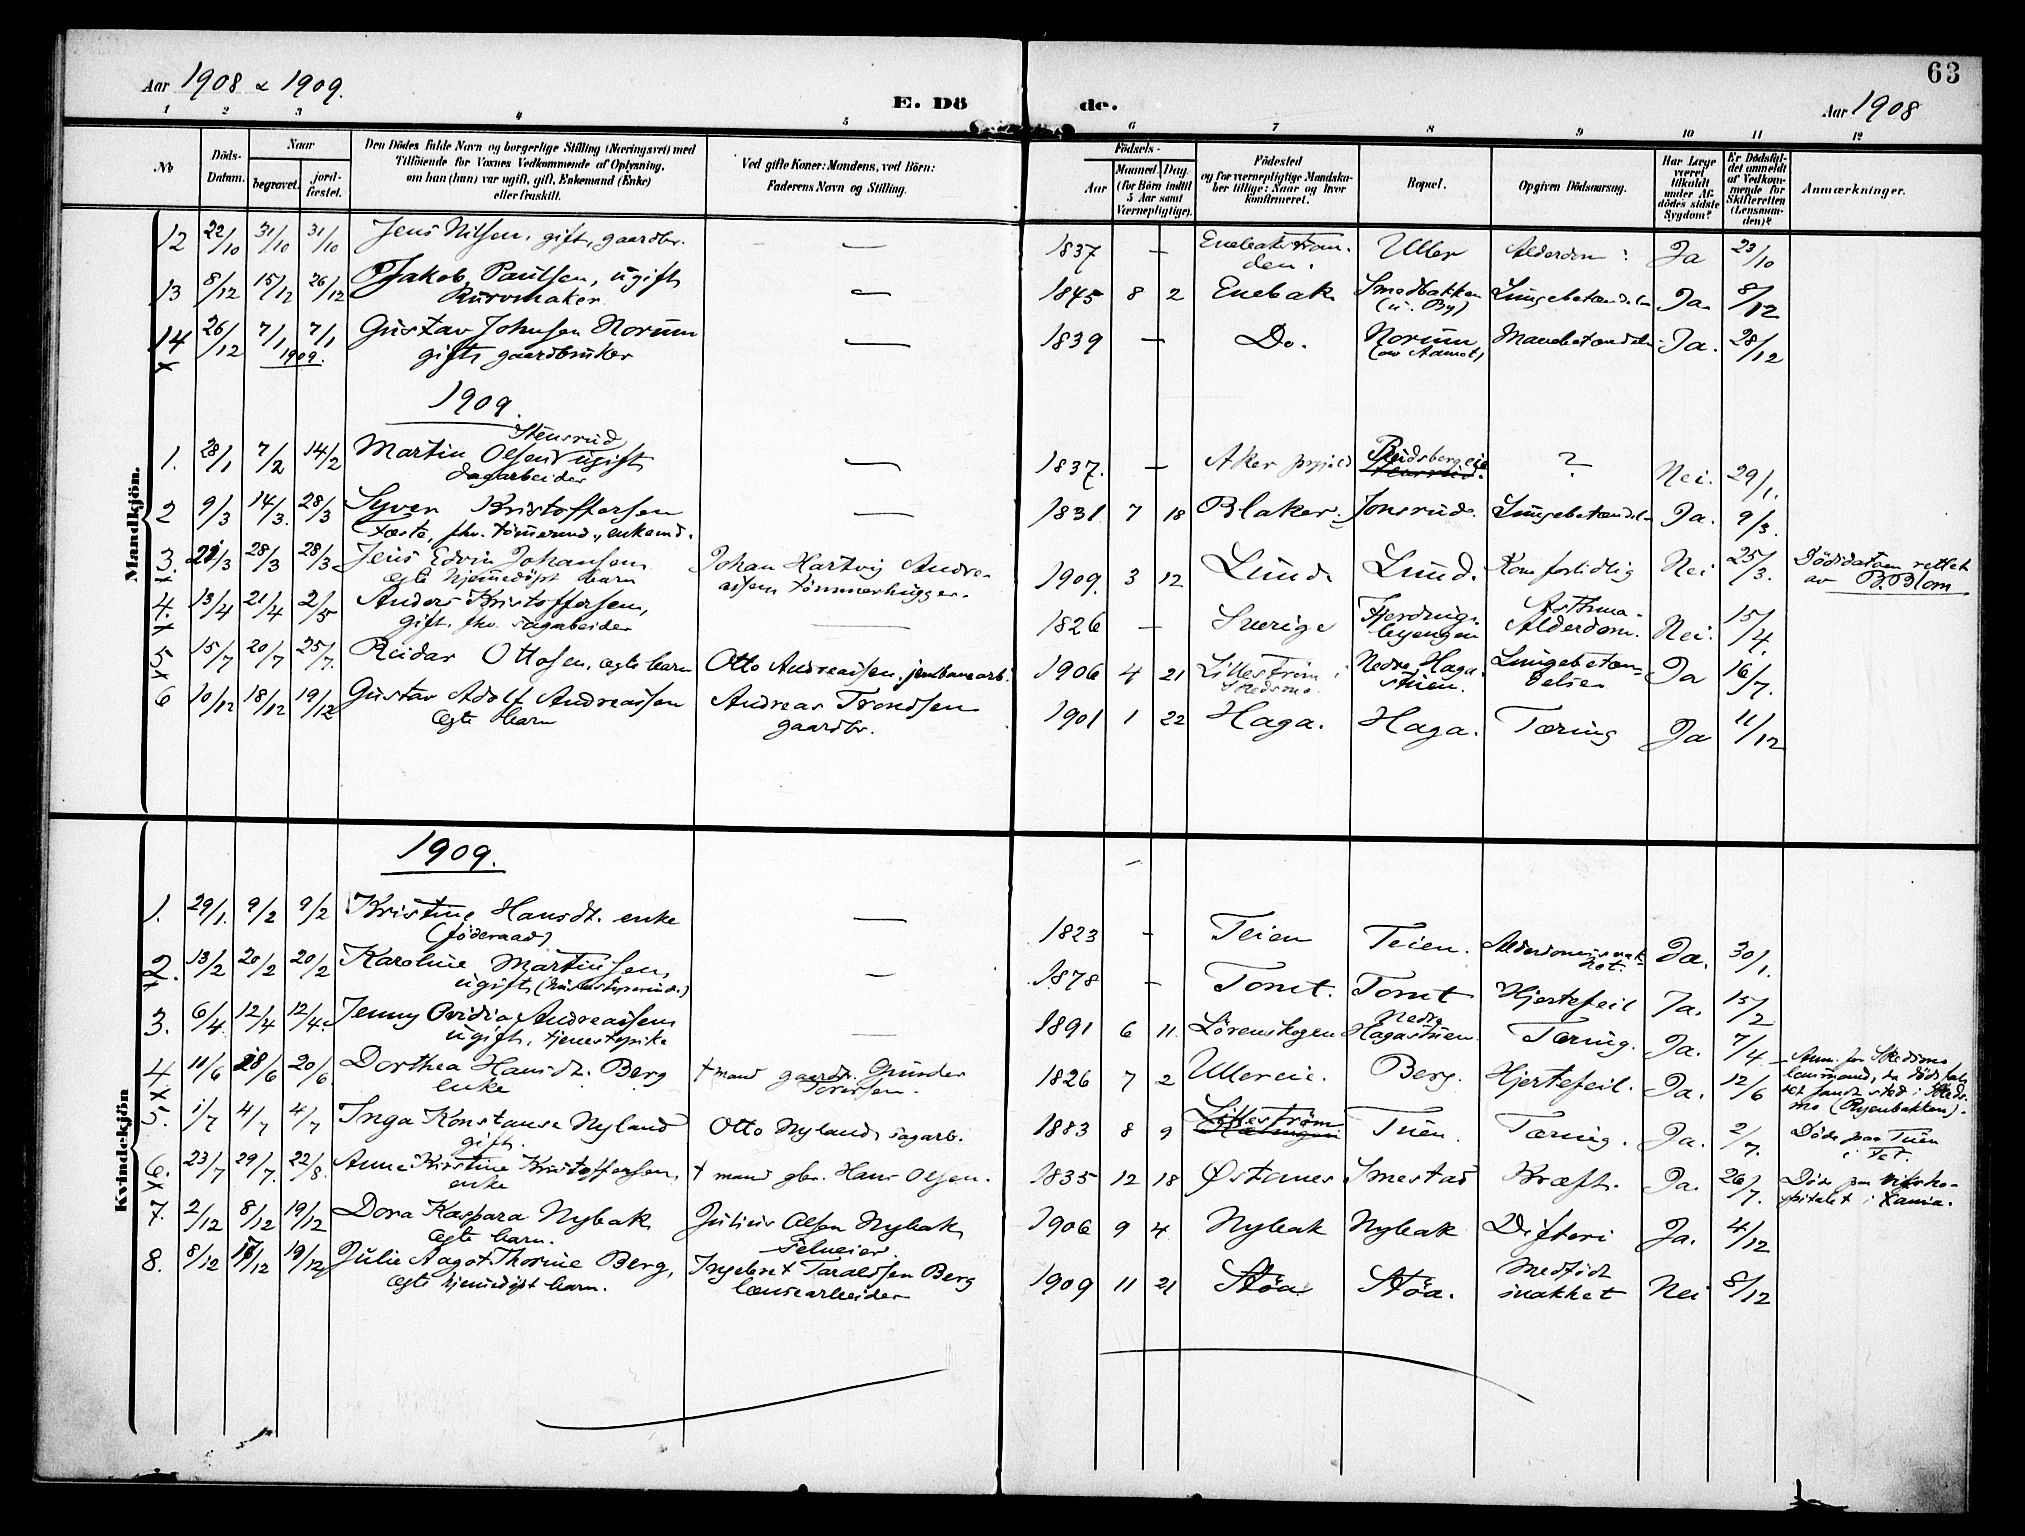 63
Aar 1908 & 1909.
E. Döde.
Aar 1908
1 2 3 4 5 6 7 8 9 10 11 12
No
Döds-Datum.
Naar
begravet.
jordfæstet.
Den Dödes fulde Navn og borgerlige Stilling (Næringsvei) med
Tilföiende for Voxnes Vedkommende af Oplysning,
om han (hun) var ugift, gift, Enkemand (Enke)
eller fraskilt.
Ved gifte Koner: Mandens, ved Börn:
Faderens Navn og Stilling.
Födsels-
Aar
Maaned. Dag.
(for Börn indtil
5 Aar samt
Værnepligtige).
Födested
og for værnepligtige Mandska-
ber tillige: Naar og hvor
konfirmeret.
Bopæl.
Opgiven Dödsaarsag.
Har Læge
været
tilkaldt
under Af-
dödes sidste
Sygdom?
Er Dödsfal-
det anmeldt
af Vedkom-
mende for
Skifteretten
(Lensman-
den)?
Anmærkninger.
Mandkjön.
12 22/10 31/10 31/10 Jens Nilsen, gift, gaardbr. — 1837 — Enebakstranden. Uller Alderdom Ja 23/10
13 8/12 15/12 26/12 Jakob Paulsen, ugift — 1845 8 2 Enebak Smedbakken (u. By) Lungebetændelse Ja 8/12
Kurvmaker
14 26/12 7/1 7/1 Gustav Johnsen Norum — 1839 — Do. Norum Mavebetændelse Ja. 28/12
x 1909. gift, gaardbruker
1909.
Stensrud
1. 28/1 7/2 14/2 Martin Olsen ugift — 1837. — Aker Reidsbergeie ? Nei. 29/1.
dagarbeider
2 9/3 14/3. 28/3 Syver Kristoffersen — 1831 7 18 Blaker. Jonsrud. Lungebetændelse Ja. 9/3.
enkemd.
3. 21/3 28/3 28/3 Jens Edvin Johansen Johan Hartvig Andre- 1909. 3 12 Lund. Lund. Kom fortidlig Nei 25/3. Dödsdatoen rettet
x egte hjemmedöpt barn assen tömmerhugger. av B. Blom
4. 13/4 21/4 2/5 Anders Kristoffersen, — 1826 — Sverige Asthma. Nei. 15/4.
x gift, fhv. sagarbeider Alderdom.
5 15/7 20/7 25/7. Reidar Ottosen, egte barn Otto Andreassen, jernbanearb. 1906 4 21 Lilleström i Skedsmo. Nedre Haga- Lungebetæn- Ja 16/7.
x stuen. delse
6 10/12 18/12 19/12 Gustav Adolf Andreassen Andreas Trondsen 1901 1 22 Haga. Haga. Tæring Ja 11/12
egte barn gaardbr.
Kvindekjön
1909.
1. 29/1. 9/2 9/2 Kristine Hansdt. enke — 1823 — Teien Teien. Ja. 30/1.
(föderaad)
2. 13/2 20/2 20/2 Karoline Martinsen, — 1878 — Tomt. Tomt Hjertefeil Ja. 15/2
x ugift
3. 6/4 12/4 12/4. Jenny Ovidia Andreassen — 1891 6 11. Lörenskogen Nedre Hagastuen. Tæring. Ja. 7/4
ugift, tjenestepike
4 11/6 18/6 20/6. Dorthea Hansdt. Berg † mand gaardbr. Gunder 1826 7 2 Ullereie. Berg. Hjertefeil. Ja. 12/6 Anm. for Skedsmo
x enke lensmand, da dödsfal-
det fandt sted i Skeds-
mo (Ryenbakken).
5. 1/7 4/7 4/7 Inga Konstanse Nyland Otto Nyland sagarb. 1883 8 9 Lilleström Tuen. Tæring. Ja. 2/7. Döde paa Tuen
gift. i Fet.
6. 23/7 29/7. 22/8. Anne Kirstine Kristoffersen, † mand gbr. Hans Olsen. 1835 12 18 Østenes Smestad Kræft. Ja. 26/7. Döde paa riksho-
x enke spitalet i Kania.
7. 2/12 8/12 19/12 Dora Kaspara Nybak Julius Olsen Nybak 1906 9 4 Nybak Nybak Difteri Ja. 4/12
egte barn. selveier.
8. 8/12 18/12 19/12 Julie Aagot Thorine Berg, Ingebret Taraldsen Berg 1909 11 21 Stöa Stöa. Medfödt Nei 8/12
egte hjemmedöpt barn. lensearbeider svakhet